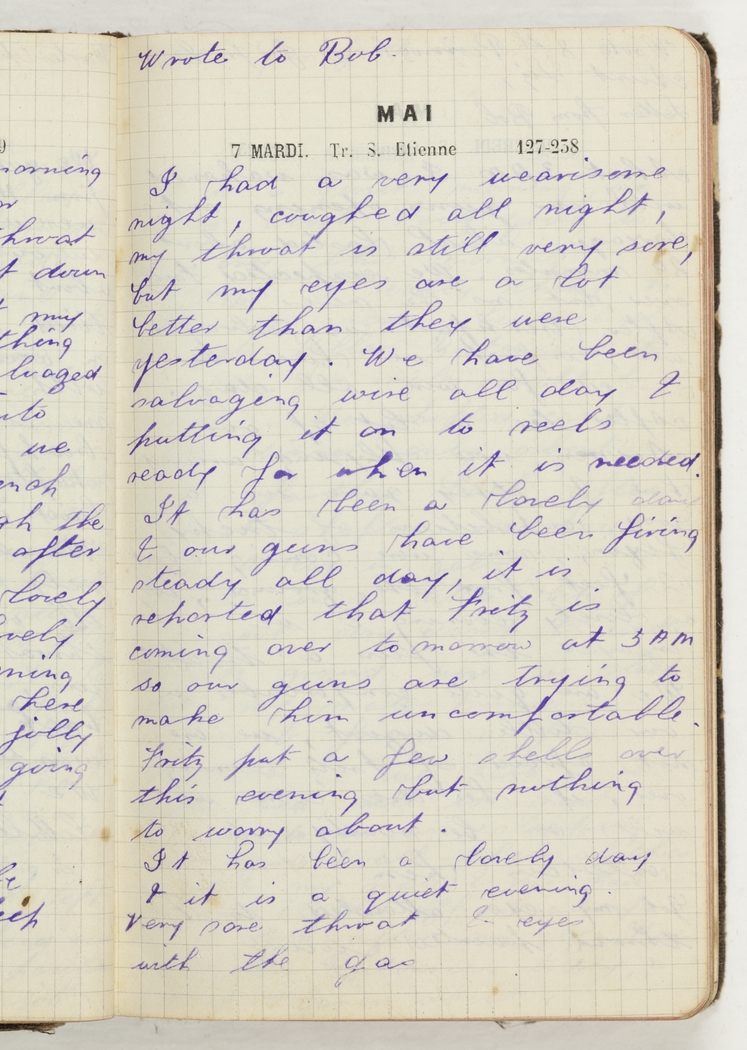 Wrote to Bob.
MAI
7 MARDI. Tr. S. Etienne 127-238
I had a very wearisome
night, coughed all night,
my throat is still very sore,
but my eyes are a lot
better than they were
yesterday. We have been
salvaging wire all day &
putting it on to reels
ready for when it is needed.
It has been a lovely day
& our guns have been firing
steady all day, it is
reported that Fritz is
coming over tomorrow at 3 AM
so our guns are trying to
make him uncomfortable.
Fritz put a few shells over
this evening but nothing
to worry about.
It has been a lovely day
& it is a quiet evening.
Very sore throat & eyes
with the gas
9
morning
throat
down
my
thing
lvaged
into
we
the
after
lovely
vely
ning
here
jolly
going